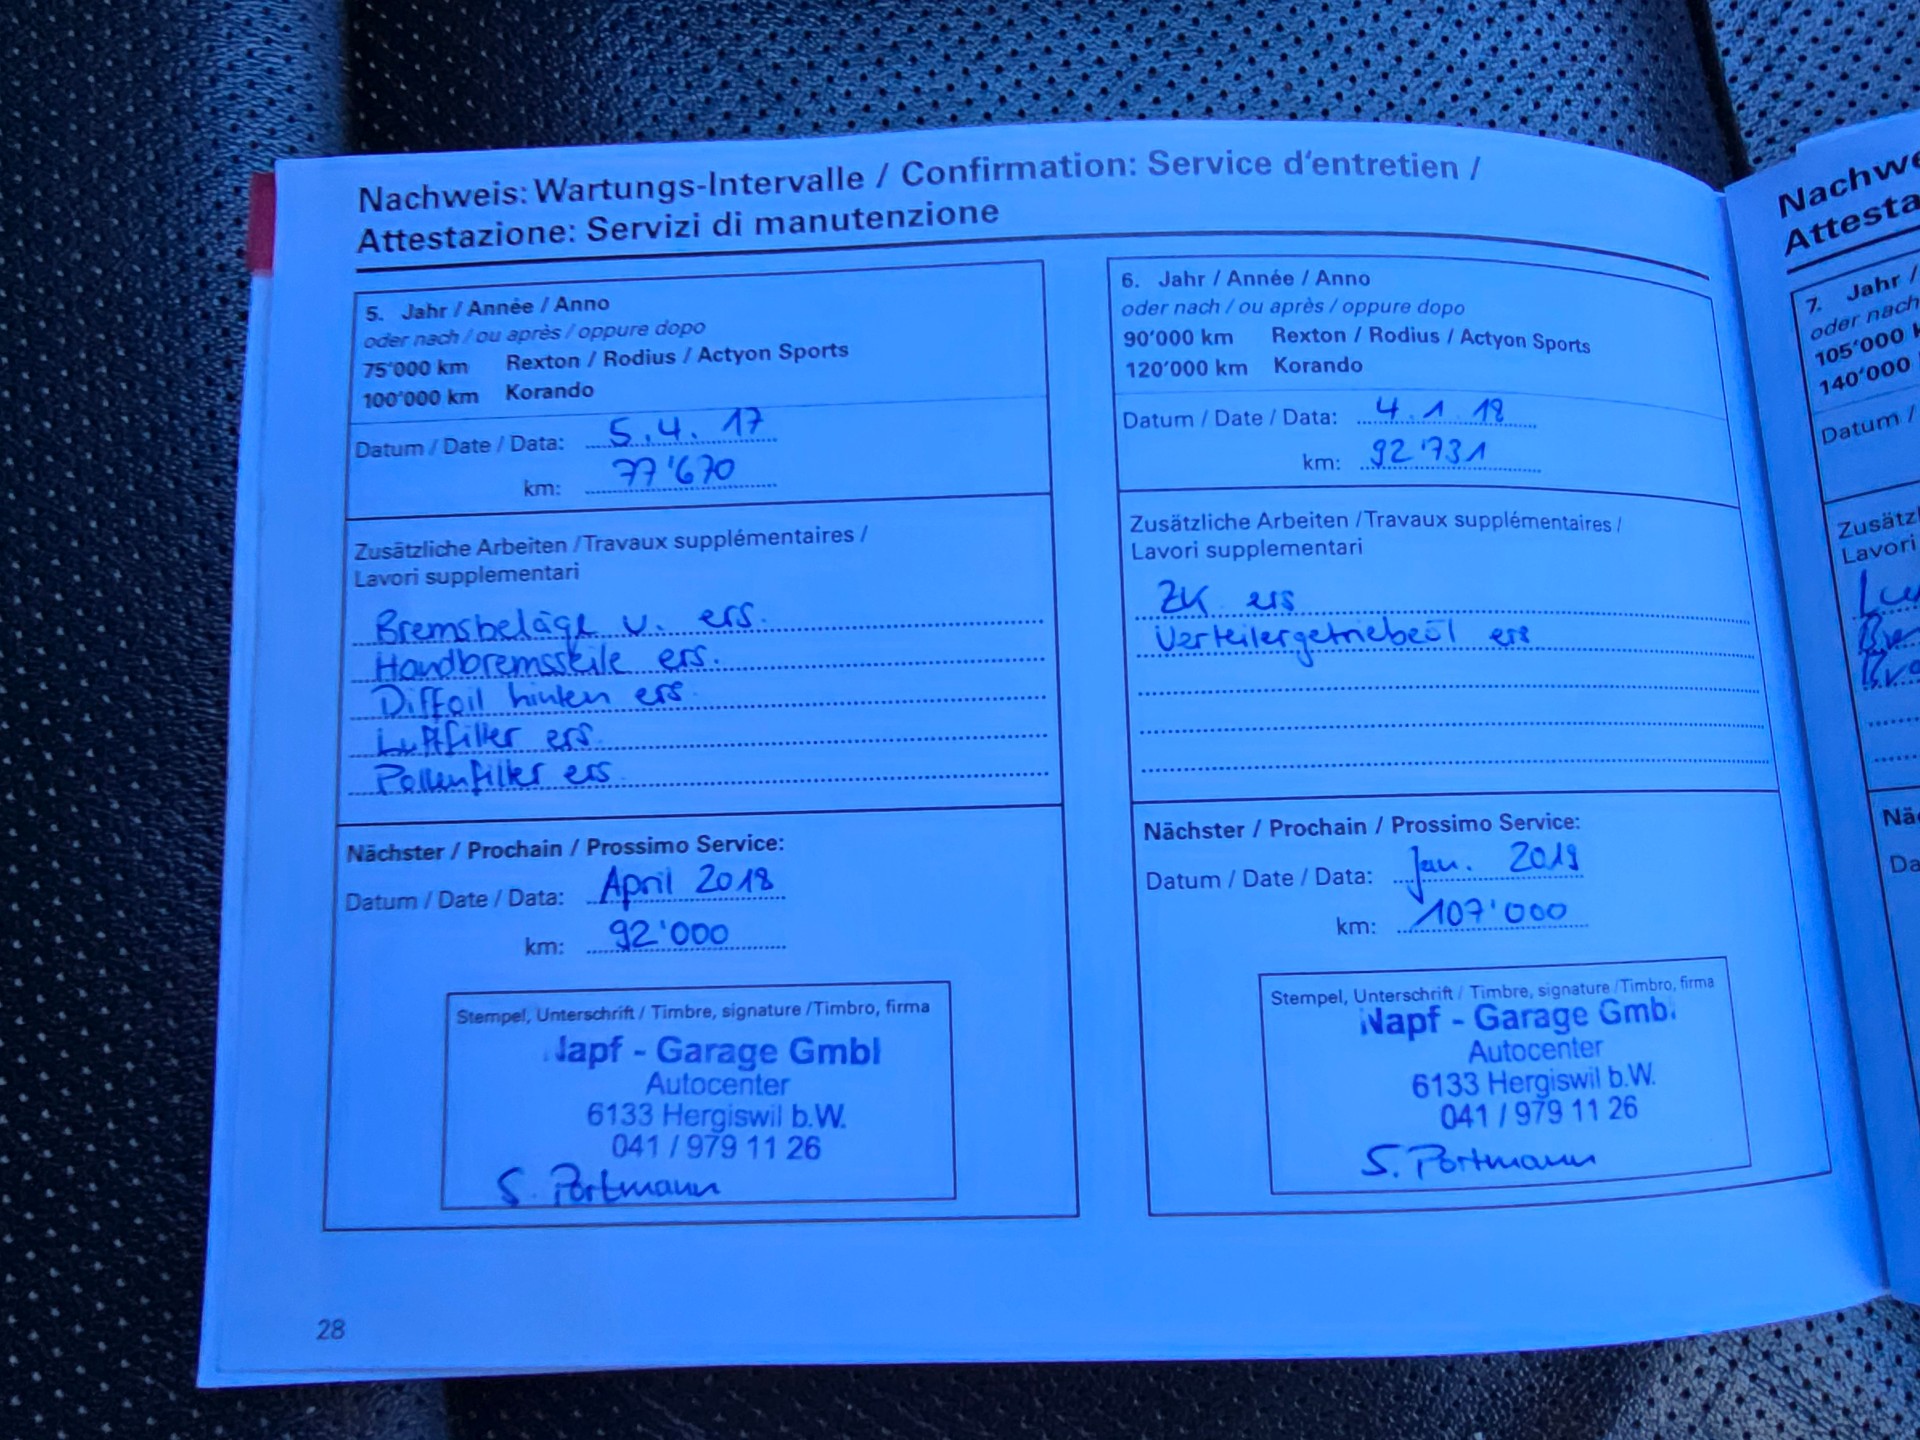 Nachweis: Wartungs-Intervalle / Confirmation: Service d'entretien /
Attestazione: Servizi di manutenzione
5. Jahr / Année / Anno
oder nach / ou après / oppure dopo
75'000 km Rexton / Rodius / Actyon Sports
100'000 km Korando
Datum / Date / Data: 5.4. 17
km: 77'670
Zusätzliche Arbeiten / Travaux supplémentaires /
Lavori supplementari
Bremsbeläge v. ers.
Handbremsseile ers.
Diffoil hinten ers
Luftfilter ers
Pollenfilter ers
Nächster / Prochain / Prossimo Service:
Datum / Date / Data: April 2018
km: 92'000
Stempel, Unterschrift / Timbre, signature / Timbro, firma
Napf - Garage Gmb
Autocenter
6133 Hergiswil b.W.
041 / 979 11 26
S. Portmann
28
6. Jahr / Année / Anno
oder nach / ou après / oppure dopo
90'000 km Rexton / Rodius / Actyon Sports
120'000 km Korando
Datum / Date / Data: 4.1.18
km: 92'731
Zusätzliche Arbeiten / Travaux supplémentaires /
Lavori supplementari
ZK ers
Verteilergetriebeöl ers
Nächster / Prochain / Prossimo Service:
Datum / Date / Data: Jan. 2019
km: 107'000
Stempel, Unterschrift / Timbre, signature / Timbro, firma
Napf - Garage Gmb
Autocenter
6133 Hergiswil b.W.
041 / 979 11 26
S. Portmann
Nachwe
Attesta
7. Jahr /
oder nach
105'000 k
140'000
Datum /
Zusätzl
Lavori
Nä
Da